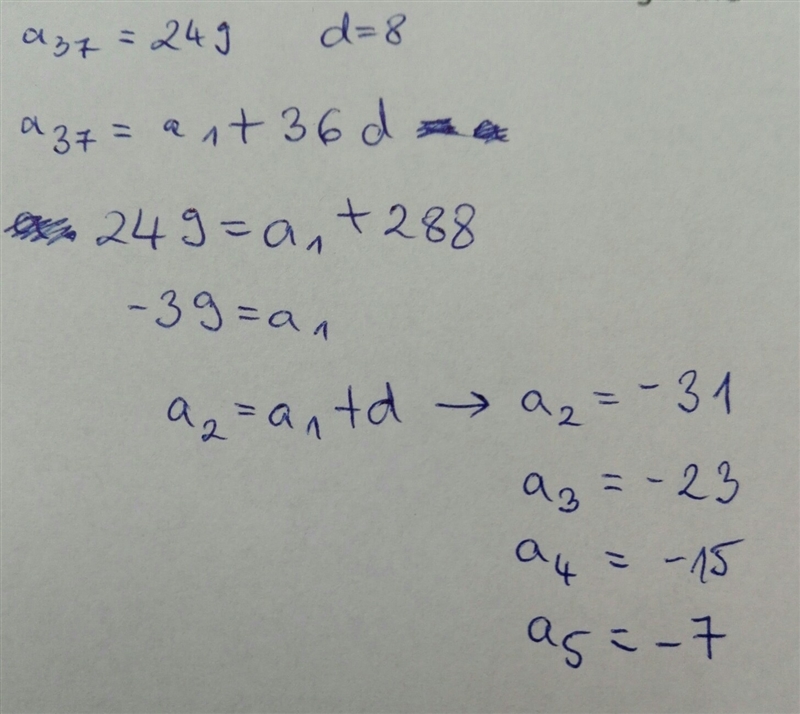 a₃₇ = 249 d=8
a₃₇ = a₁ + 36d
249 = a₁ + 288
-39 = a₁
a₂ = a₁ + d → a₂ = -31
a₃ = -23
a₄ = -15
a₅ = -7